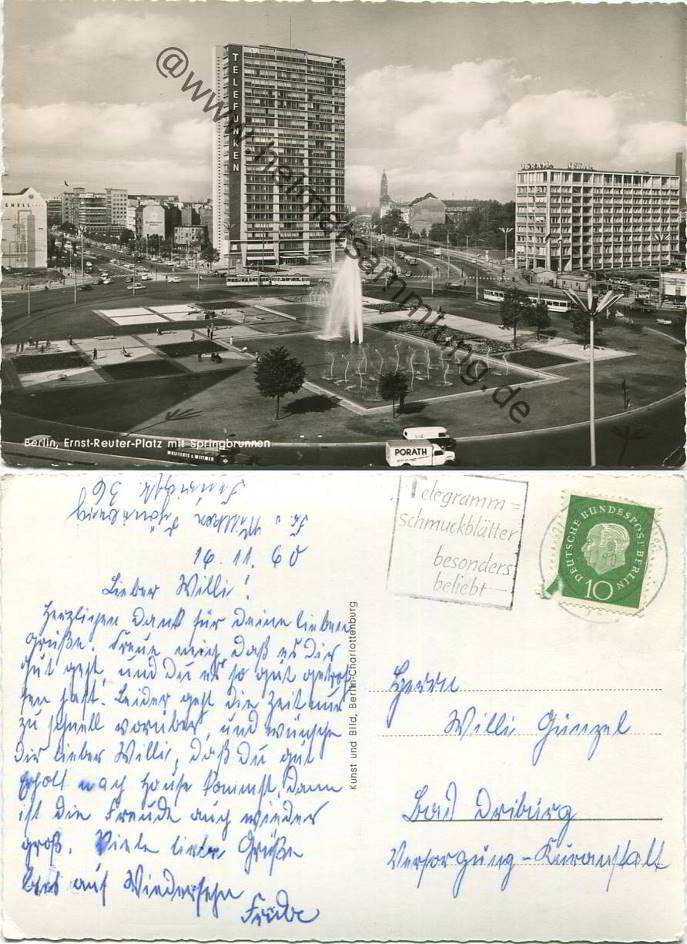 @www.heimatsammlung.de
TELEFUNKEN
SHELL
OSRAM
PORATH
Berlin, Ernst-Reuter-Platz mit Springbrunnen
Schöneberg
16.11.60
Lieber Willi!
Herzlichen Dank für deine lieben
Grüße. Freue mich daß es dir
gut geht, und du es so gut getrof-
fen hast. Leider geht die Zeit nur
zu schnell vorüber, und wünsche
dir lieber Willi, daß du gut
erholt nach Hause kommst, dann
ist die Freude auch wieder
groß. Viele liebe Grüße
bis auf Wiedersehn
Kunst und Bild, Berlin-Charlottenburg
Telegramm-
schmuckblätter
besonders
beliebt
DEUTSCHE BUNDESPOST BERLIN
10
Herrn
Willi Günzel
Bad Driburg
Versorgung-Kuranstalt